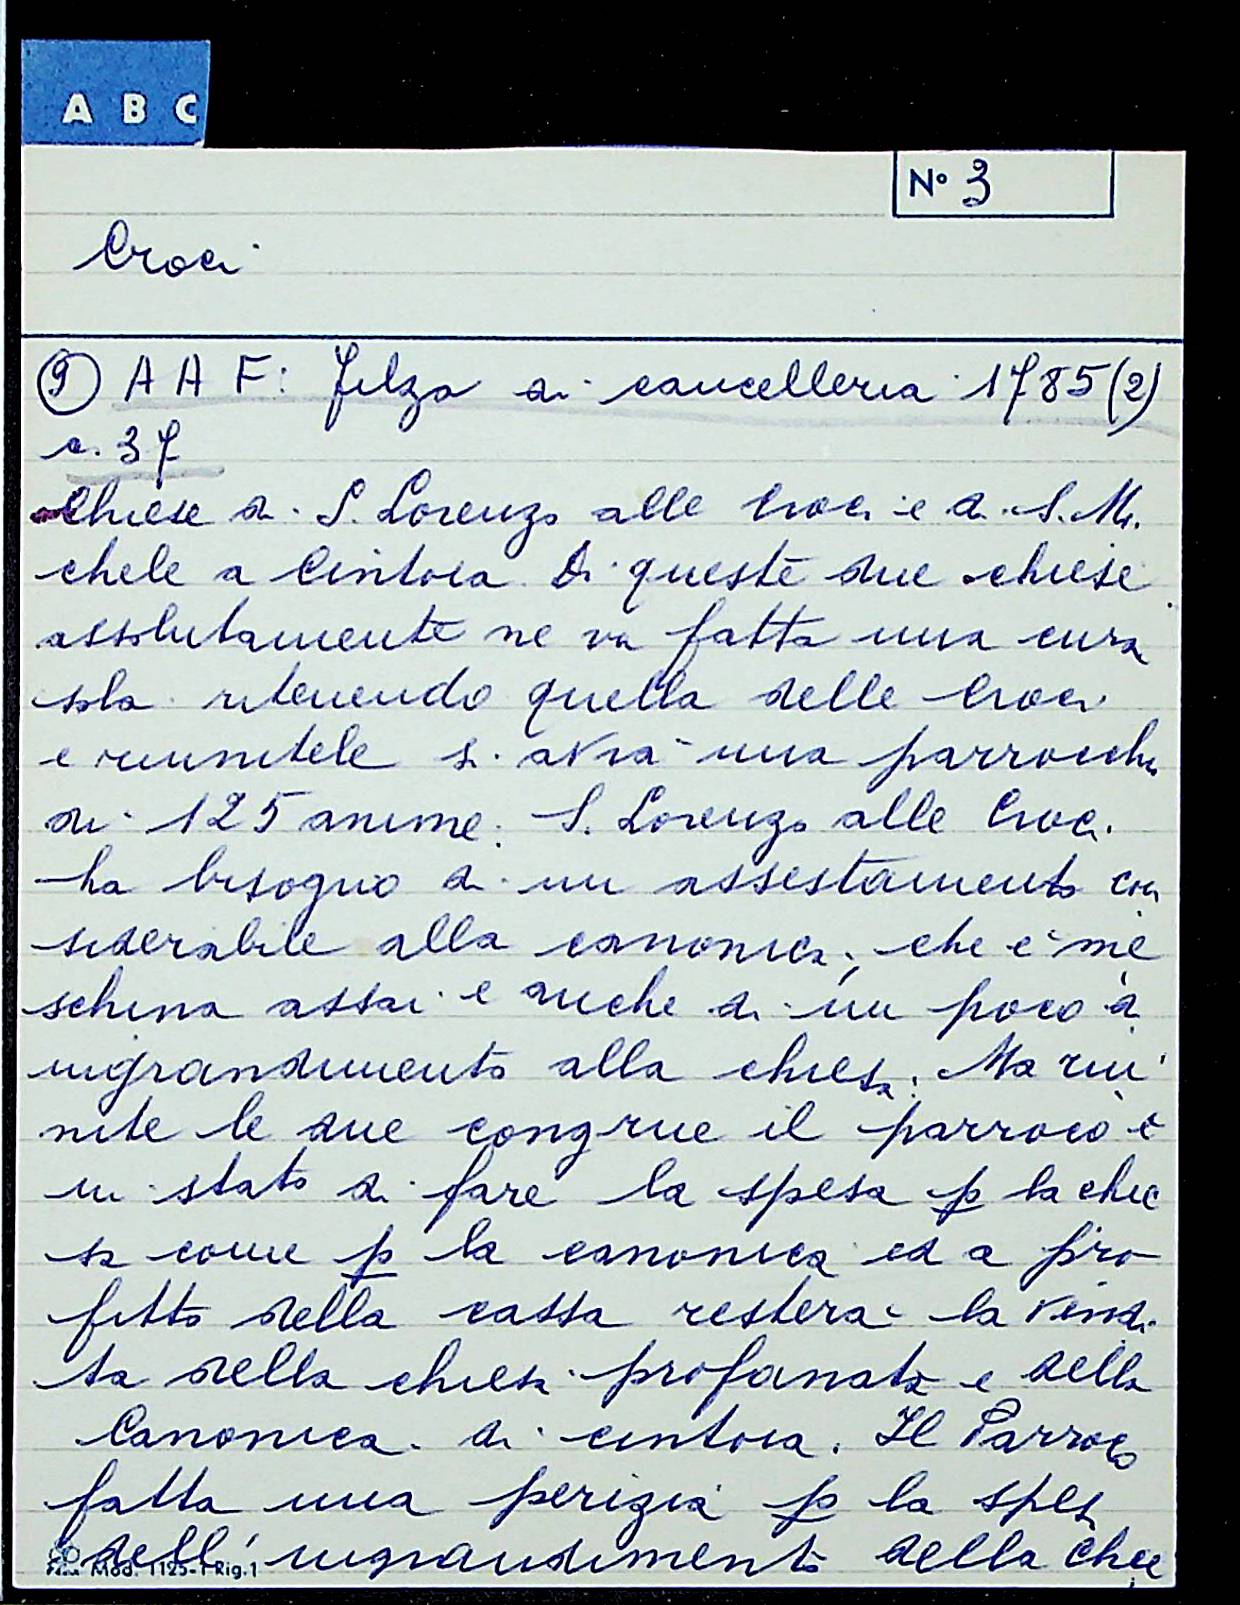 A B C
Nº 3
Croci
9) A A F: Filza di cancelleria 1785(2)
c. 37
Chiese di S. Lorenzo alle Croci e di S. Mi
chele a Cintoia. Di queste due chiese
assolutamente ne va fatta una cura
sola ritenendo quella delle Croci
e riunitele si avrà una parrocchia
di 125 anime. S. Lorenzo alle Croci
ha bisogno di un assestamento con
siderabile alla canonica, che è me
schina assai e anche di un poco d'
ingrandimento alla chiesa. Ma riu
nite le due congrue il parroco è
in stato di fare la spesa p la chie
sa come p la canonica ed a pro
fitto della cassa resterà la vendi
ta della chiesa profanata e della
Canonica di cintoia. Il Parroco
fatta una perizia p la spesa
dell'ingrandimento della chie
Mod. 1125-1 Rig. 1